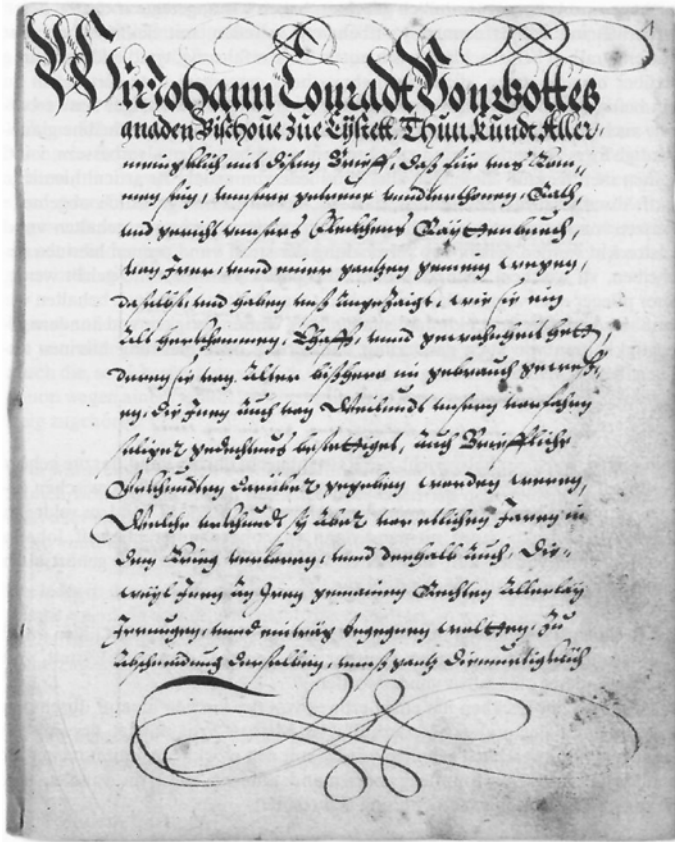 Wir Johann Conradt Von Gottes
gnaden Bischoue Zue Eystett, Thun Kundt Aller,
meniglich mit disem Brieff, Daß für vnns Kom-
men sein, vnnsere getreue vnnderthonen, Rath,
vnd gericht vnnsers Fleckhens Rayttenbuech,
von Irer, vnnd einer gantzen gemein wegen,
daselbst, vnd haben vnnß angezaigt, wie sy ein
Alt herkhommen, Ehafft, vnnd gewohnheit hett,
deren sy von Alter bißhero im gebrauch geweß-
en, die Inen Auch von Weilundt vnsern vorfahrn
seliger gedechtnus bestettiget, auch Brieffliche
Vrkhundten darüber gegeben worden weren,
Welche vrkhundt sy Aber vor etlichen Jaren in
dem Krieg verloren, vnnd derhalb Auch, Die-
weyl Inen An Iren gemainen Rechten Allerlay
Irrungen, vnnd eintrag begegnen wollten, Zu
Abschneidung derselben, vnnß gantz Diemüetigklich